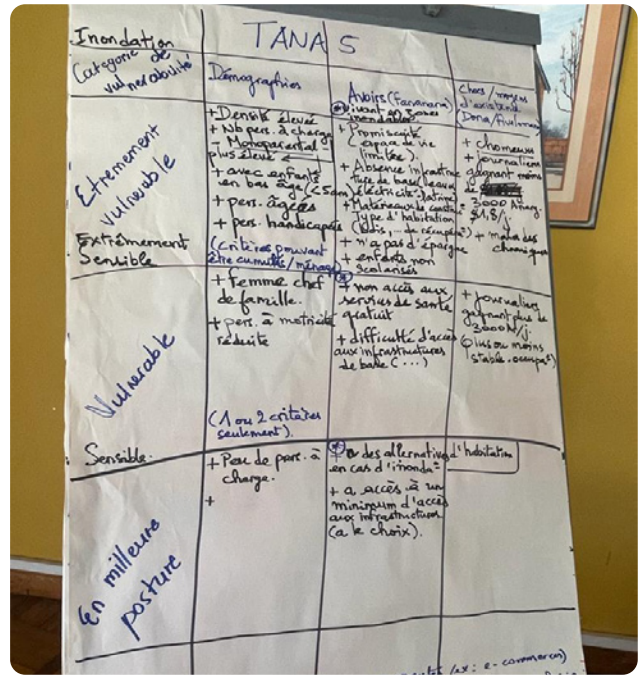 Inondation
TANA 5
Catégorie de
vulnérabilité
Démographies
Avoirs (Fananana)
vivant en zones
inondables
Chocs / moyens
d'existence
Extrêmement
vulnérable
Extrêmement
Sensible
+ Densité élevée
+ Nb pers. à charge
- Monoparental -
plus élevé
+ avec enfants
en bas âge (<5ans)
+ pers. âgées
+ pers. handicapés
(critères pouvant
être cumulés/ménage)
+ Promiscuité
(espace de vie
limitée).
+ Absence infrastruc
ture de base (eaux
électricité, latrine)
+ Matériaux de
Type d'habitation
+ n'a pas d'épargne
+ enfants non
scolarisés
+ chomeurs
+ journaliers
gagnant moins
de
3000 Ariary.
$1,8/j.
+ maladies
chroniques
Vulnerable
Sensible.
+ femme chef
de famille.
+ pers. à motricité
réduite
(1 ou 2 critères
seulement).
+ non accès aux
services de santé
gratuit
+ difficulté d'accès
aux infrastructures
de base (...)
+ journaliers
gagnant plus de
3000Ar/j.
(plus ou moins
stable.
En milleure
posture
+ Peu de pers. à
charge.
+
a des alternatives d'habitation
en cas d'inonda°
+ a accès à un
minimum d'accès
aux infrastructures
(a le choix).
/ex: e-commerce)